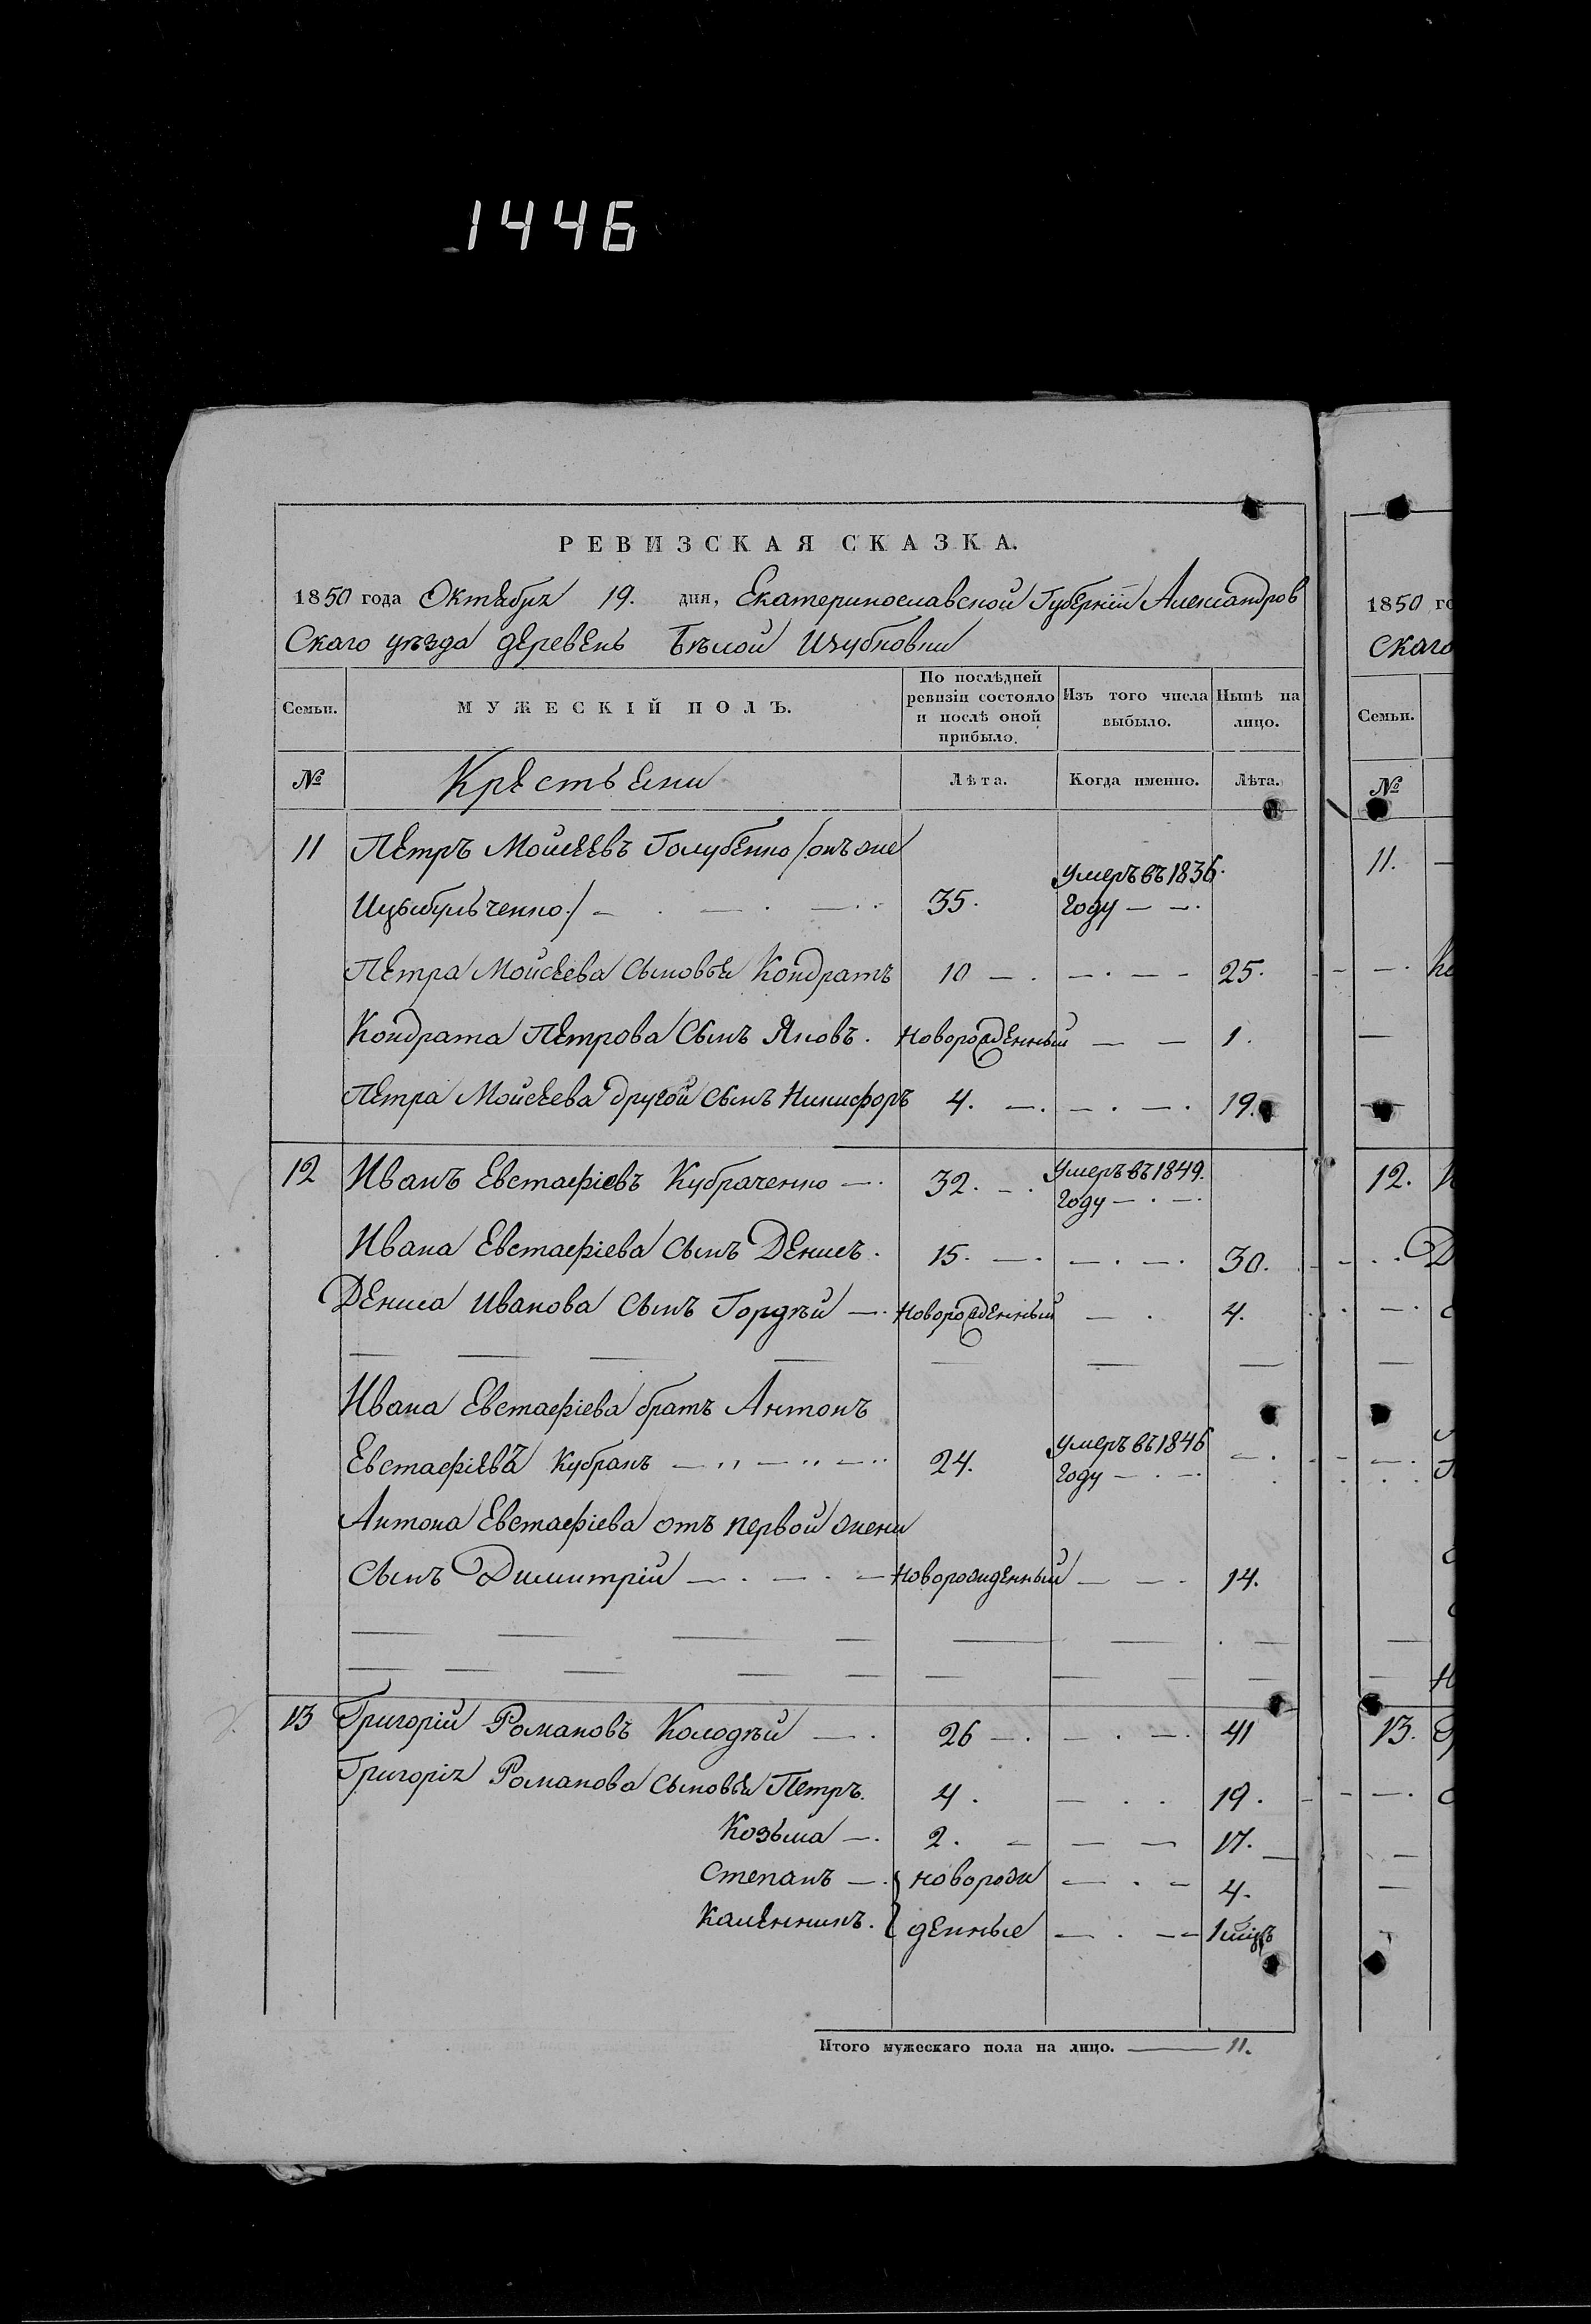 1446
РЕВИЗСКАЯ СКАЗКА.
1850 года Октября 19. дня, Екатеринославской Губернiи Александров
Скаго уѣзда деревень Бѣлой
Семьи.
МУЖЕСКIЙ ПОЛЪ.
По послѣдней ревизiи состояло и послѣ оной прибыло.
Изъ того числа выбыло.
Нынѣ на лицо.
№ Крестьяни Лѣта. Когда именно. Лѣта.
11 Петръ Моисеевъ Голубенко /онъ же
Цыбульченко/ 35. Умеръ въ 1836. Году
Петра Моисеева сыновья Кондратъ 10 25.
Кондрата Петрова Сынъ Яковъ. Новорожденный 1.
Петра Моисеева другой сынъ Никифоръ 4. 19.
12 Иванъ Евстафiевъ Кубраченко 32. Умеръ въ 1849. Году
Ивана Евстафiева сынъ Денисъ. 15. 30.
Дениса Иванова сынъ Гордѣй Новорожденный 4.
Ивана Евстафiева братъ Антонъ
Евстафiевъ Кубракъ 24. Умеръ въ 1846 Году
Антона Евстафiева отъ первой жени
Сынъ Димитрiй Новорожденный 14.
13 Григорiй Романовъ Колодѣй 26 41
Григорiя Романова сыновья Петръ. 4. 19.
Козьма 2. 17.
Степанъ новорож 4.
Калѣнникъ. денные 1 мѣцъ
Итого мужескаго пола на лицо. 11.
1850 го
Скаго
Семьи.
№
11.
12.
13.